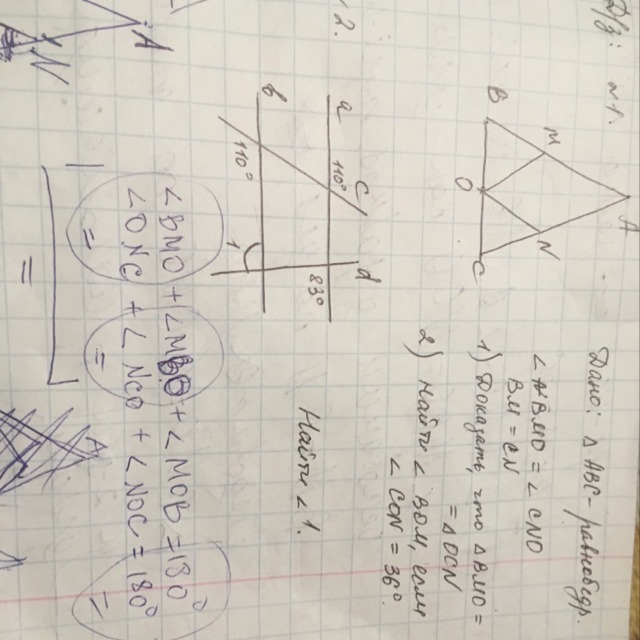 D/з: N1.
Дано: Δ ABC - равнобедр.
∠ BMO = ∠ CNO
BM = CN
1) Доказать, что Δ BMO =
= Δ OCN
2) Найти ∠ BOM, если
∠ CON = 36°.
A
M
N
B
O
C
2.
a
b
c
d
110°
110°
83°
1
Найти ∠ 1.
A
N
∠ BMO + ∠ MBO + ∠ MOB = 180°
∠ ONC + ∠ NCO + ∠ NOC = 180°
= = =
=
A